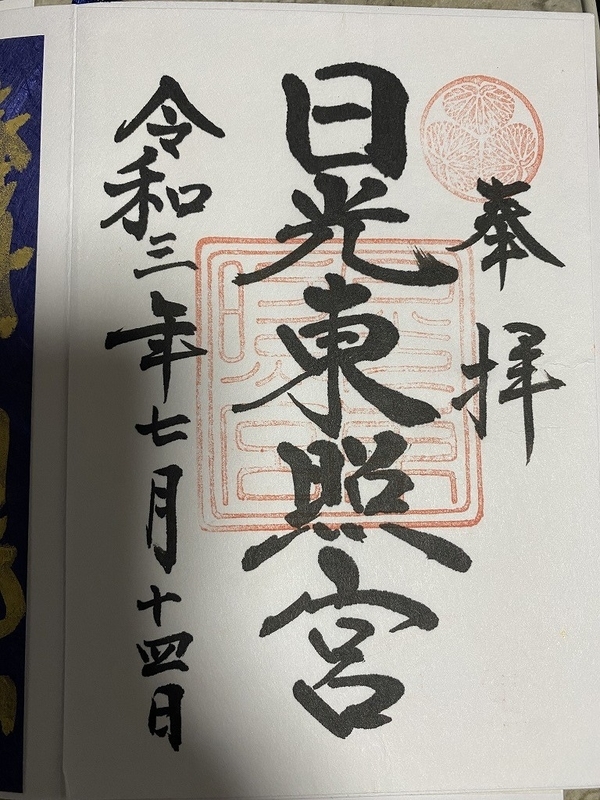 奉拝
日光東照宮
令和三年七月十四日